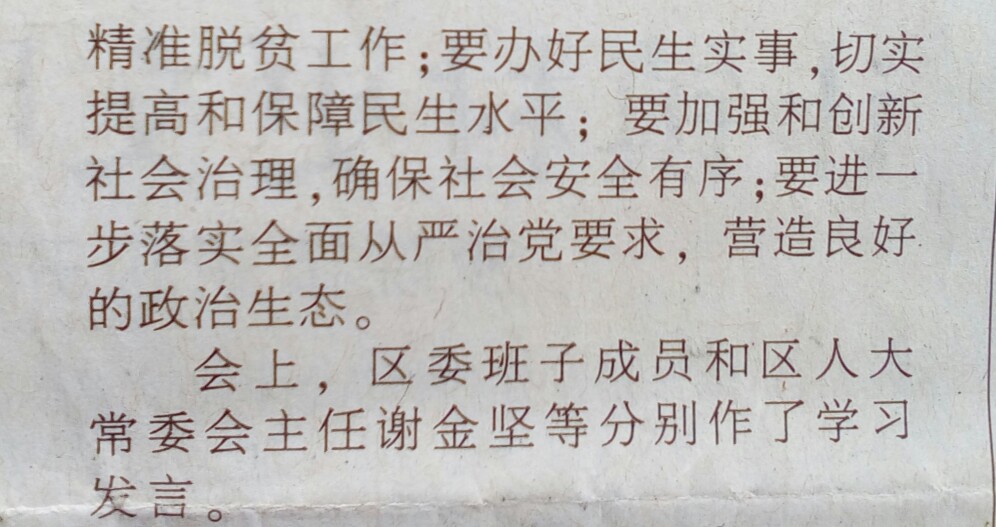 精准脱贫工作;要办好民生实事,切实
提高和保障民生水平;要加强和创新
社会治理,确保社会安全有序;要进一
步落实全面从严治党要求,营造良好
的政治生态。
会上,区委班子成员和区人大
常委会主任谢金坚等分别作了学习
发言。